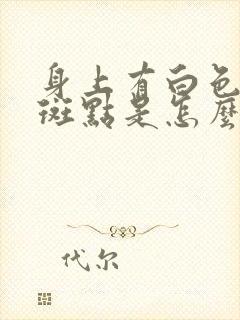 身上有白色
斑點是怎麼
代尔